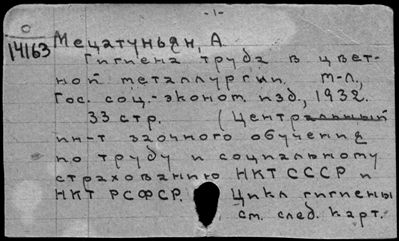 -1-
О
14163
Мецатуньян, А.
Гигиена труда в цвет-
ной металлургии. М-Л.,
Гос. соц.-эконом. изд., 1932.
33 стр. (Центральный
ин-т заочного обучения
по труду и социальному
страхованию НКТ СССР и
НКТ РСФСР. Цикл гигиены
см. след. карт.